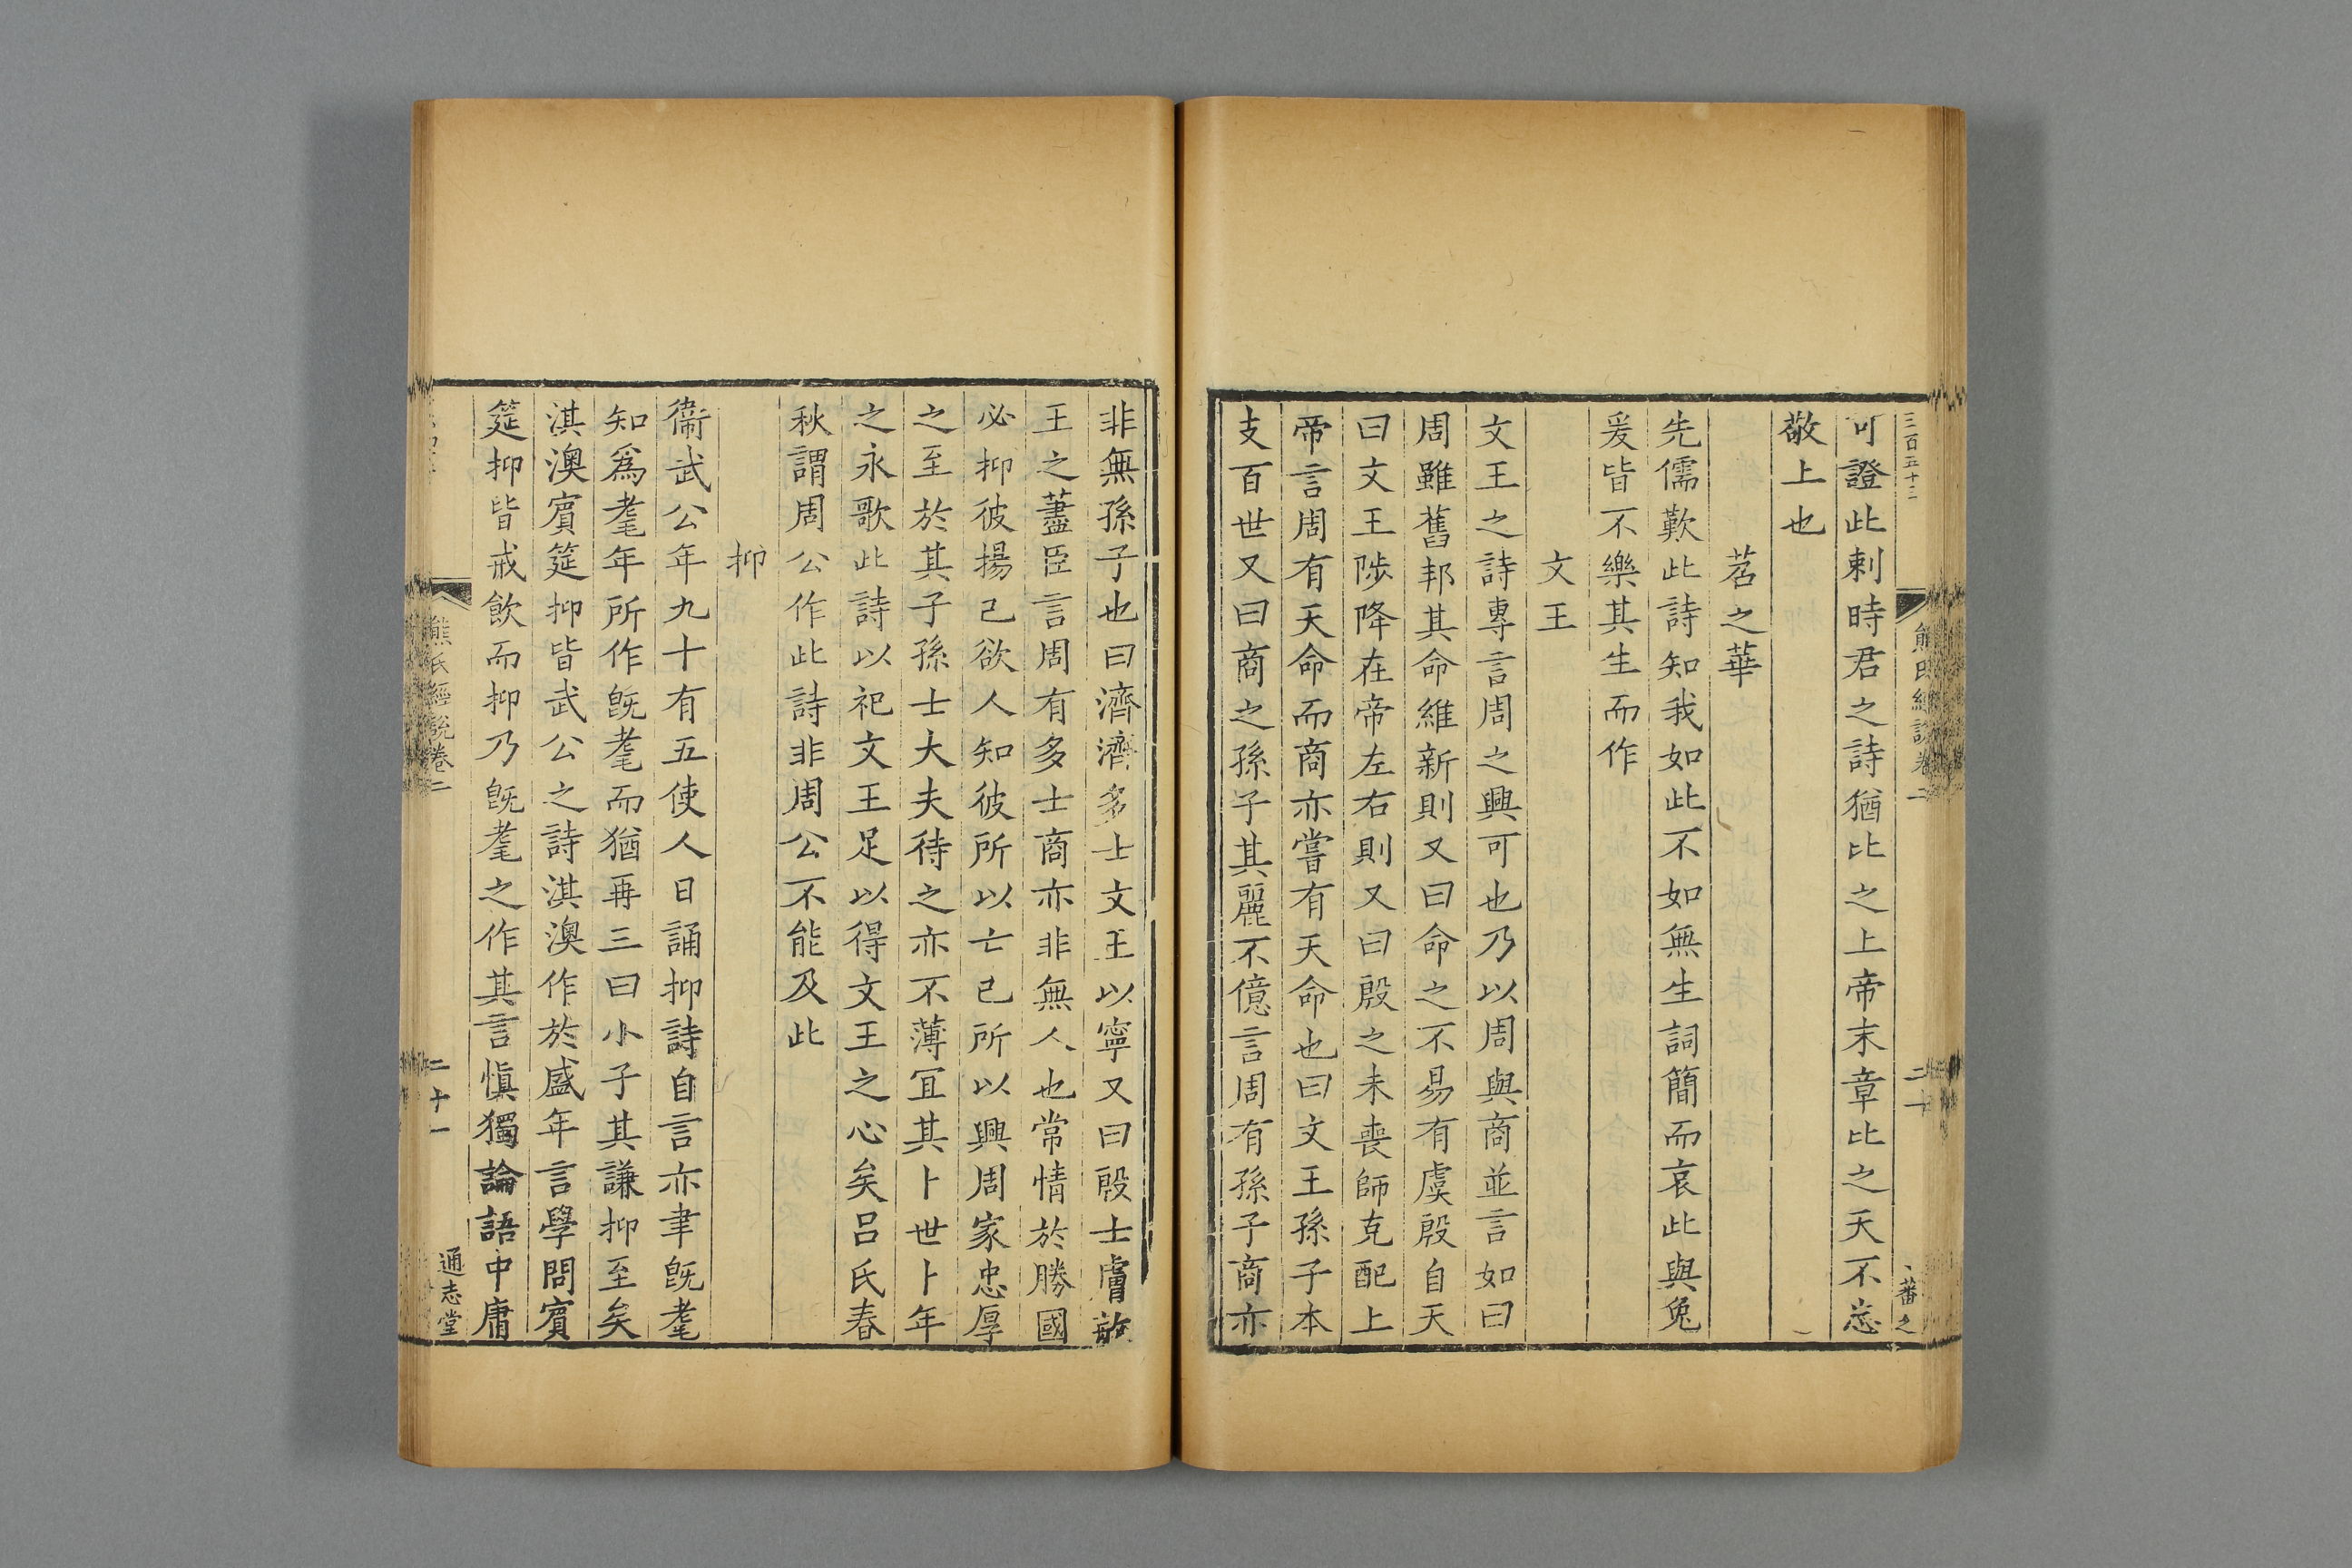 三百五十三
可證此刺時君之詩猶比之上帝末章比之天不忘
敬上也
苕之華
先儒歎此詩知我如此不如無生詞簡而哀此與兔
爰皆不樂其生而作
文王
文王之詩專言周之興可也乃以周與商並言如曰
周雖舊邦其命維新則又曰命之不易有虞殷自天
曰文王陟降在帝左右則又曰殷之未喪師克配上
帝言周有天命而商亦嘗有天命也曰文王孫子本
支百世又曰商之孫子其麗不億言周有孫子商亦
非無孫子也曰濟濟多士文王以寧又曰殷士膚敏
王之藎臣言周有多士商亦非無人也常情於勝國
必抑彼揚己欲人知彼所以亡己所以興周家忠厚
之至於其子孫士大夫待之亦不薄宜其卜世卜年
之永歌此詩以祀文王足以得文王之心矣呂氏春
秋謂周公作此詩非周公不能及此
抑
衞武公年九十有五使人日誦抑詩自言亦聿旣耄
知爲耄年所作旣耄而猶再三曰小子其謙抑至矣
淇澳賓筵抑皆武公之詩淇澳作於盛年言學問賓
筵抑皆戒飲而抑乃旣耄之作其言愼獨論語中庸
熊氏經說卷二
二十一
通志堂